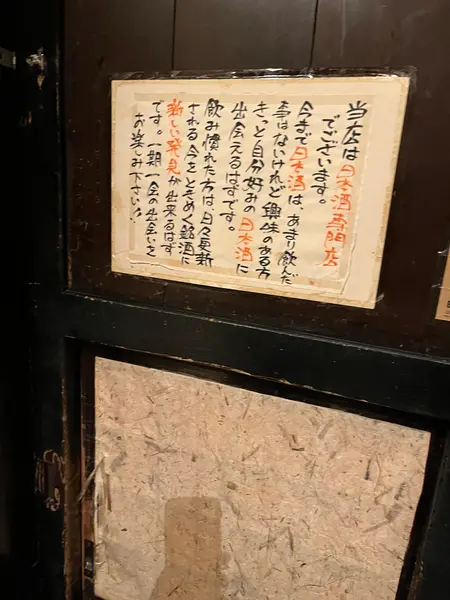 当店は日本酒専門店
でございます。
今まで日本酒は、あまり飲んだ
事はないけれど興味のある方
きっと自分好みの日本酒に
出会えるはずです。
飲み慣れた方は日々更新
される今をときめく銘酒に
新しい発見が出来るはず
です。一期一会の出会いを
お楽しみ下さい!!